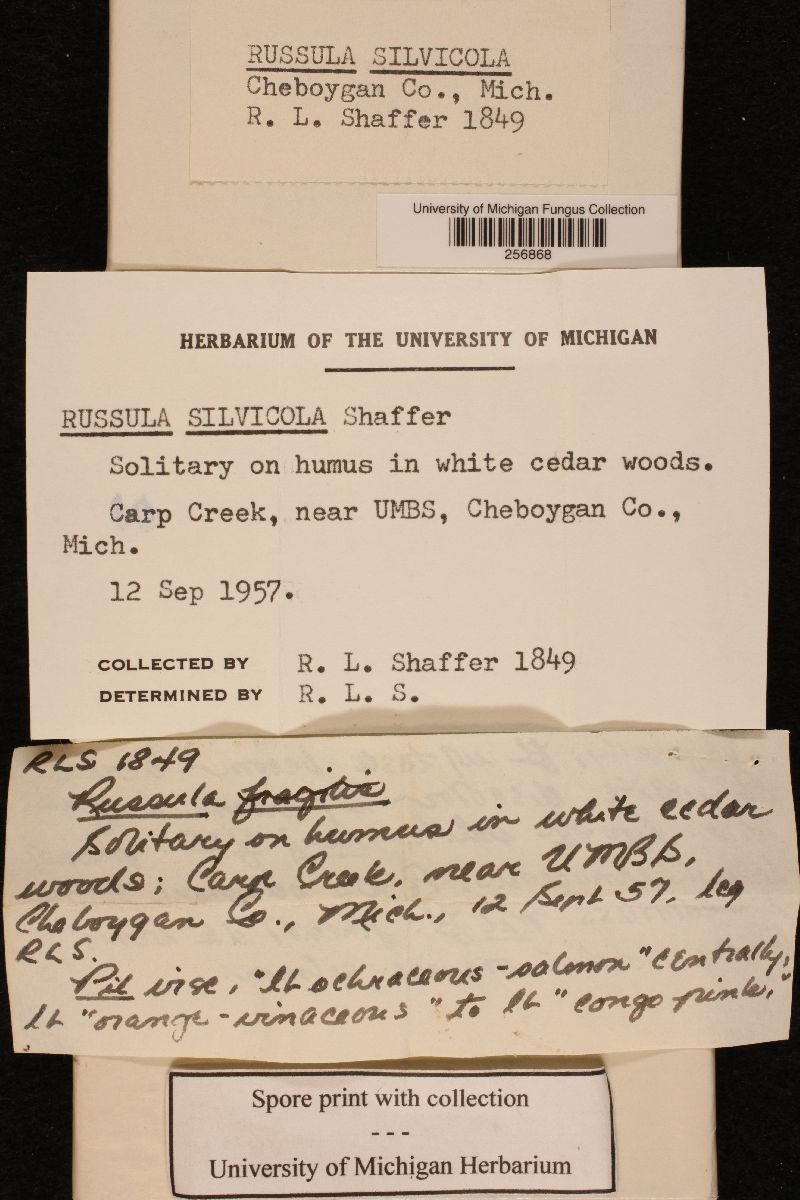 RUSSULA SILVICOLA
Cheboygan Co., Mich.
R. L. Shaffer 1849
University of Michigan Fungus Collection
256868
HERBARIUM OF THE UNIVERSITY OF MICHIGAN
RUSSULA SILVICOLA Shaffer
Solitary on humus in white cedar woods.
Carp Creek, near UMBS, Cheboygan Co.,
Mich.
12 Sep 1957.
COLLECTED BY R. L. Shaffer 1849
DETERMINED BY R. L. S.
RLS 1849
Russula fragilis
Solitary on humus in white cedar
woods; Carp Creek, near UMBS,
Cheboygan Co., Mich., 12 Sept 57. leg
RLS.
Pil visc, "lt ochraceous-salmon" centrally,
lt "orange-vinaceous" to lt "congo pink."
Spore print with collection
---
University of Michigan Herbarium